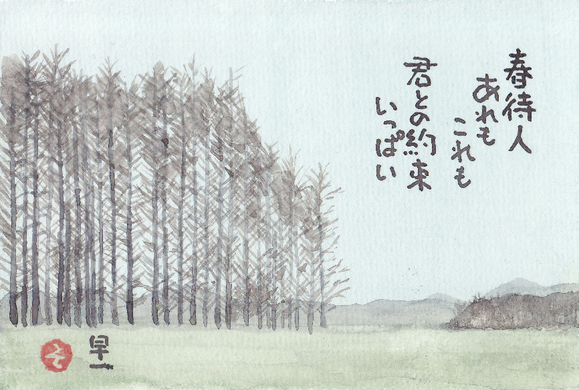 春待人
あれも
これも
君との約束
いっぱい
早一
そ